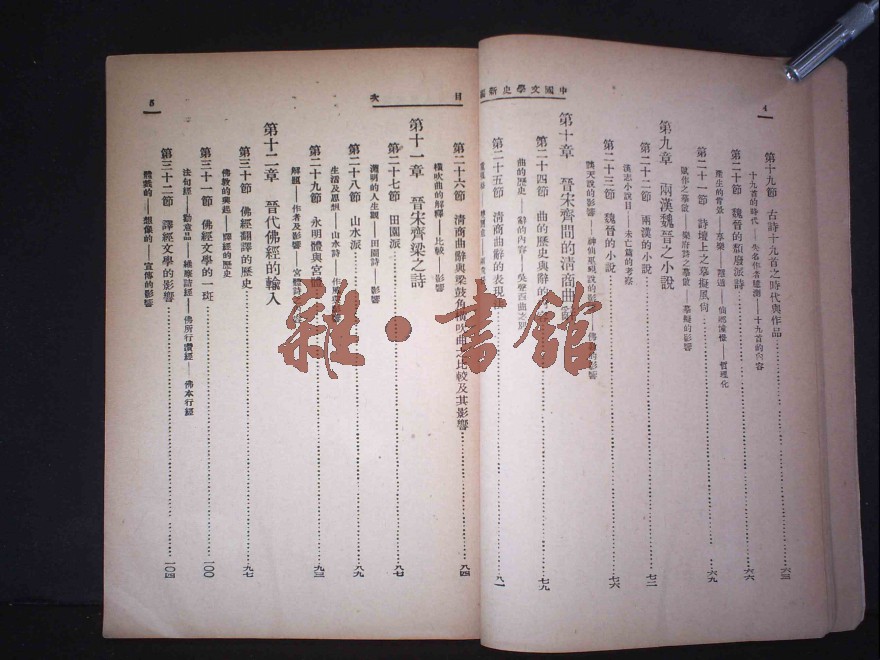 中國文學史新編
4
第十九節 古詩十九首之時代與作品 六三
十九首的時代——失名作者臆測——十九首的內容
第二十節 魏晉的頹廢派詩 六六
產生的背景——享樂——遊——仙鄉憧憬——哲理化
第二十一節 詩壇上之摹擬風尚 六九
樂府詩之摹倣——摹擬的影響
第九章 兩漢魏晉之小說
第二十二節 兩漢的小說 七二
漢志小說目——未亡篇的考察
第二十三節 魏晉的小說 七六
談天說的影響——神仙巫覡說的影響——佛的影響
第十章 晉宋齊間的清商曲辭
第二十四節 曲的歷史與辭的 七九
曲的歷史——辭的內容——吳聲西曲之別
第二十五節 清商曲辭的表現 八一
目 次
5
第二十六節 清商曲辭與梁鼓角橫吹曲之比較及其影響 八四
橫吹曲的解釋——比較——影響
第十一章 晉宋齊梁之詩
第二十七節 田園派 八七
淵明的人生觀——田園詩——影響
第二十八節 山水派 八九
生活及思想——山水詩——作風
第二十九節 永明體與宮體 九三
解題——作者及影響——宮體詩
第十二章 晉代佛經的輸入
第三十節 佛經翻譯的歷史 九七
佛教的興起——譯經的歷史
第三十一節 佛經文學的一斑 一〇〇
法句經——勸意品——維摩詰經——佛所行讚經——佛本行經
第三十二節 譯經文學的影響 一〇四
體裁的——想像的——宣傳的影響
雜·書館